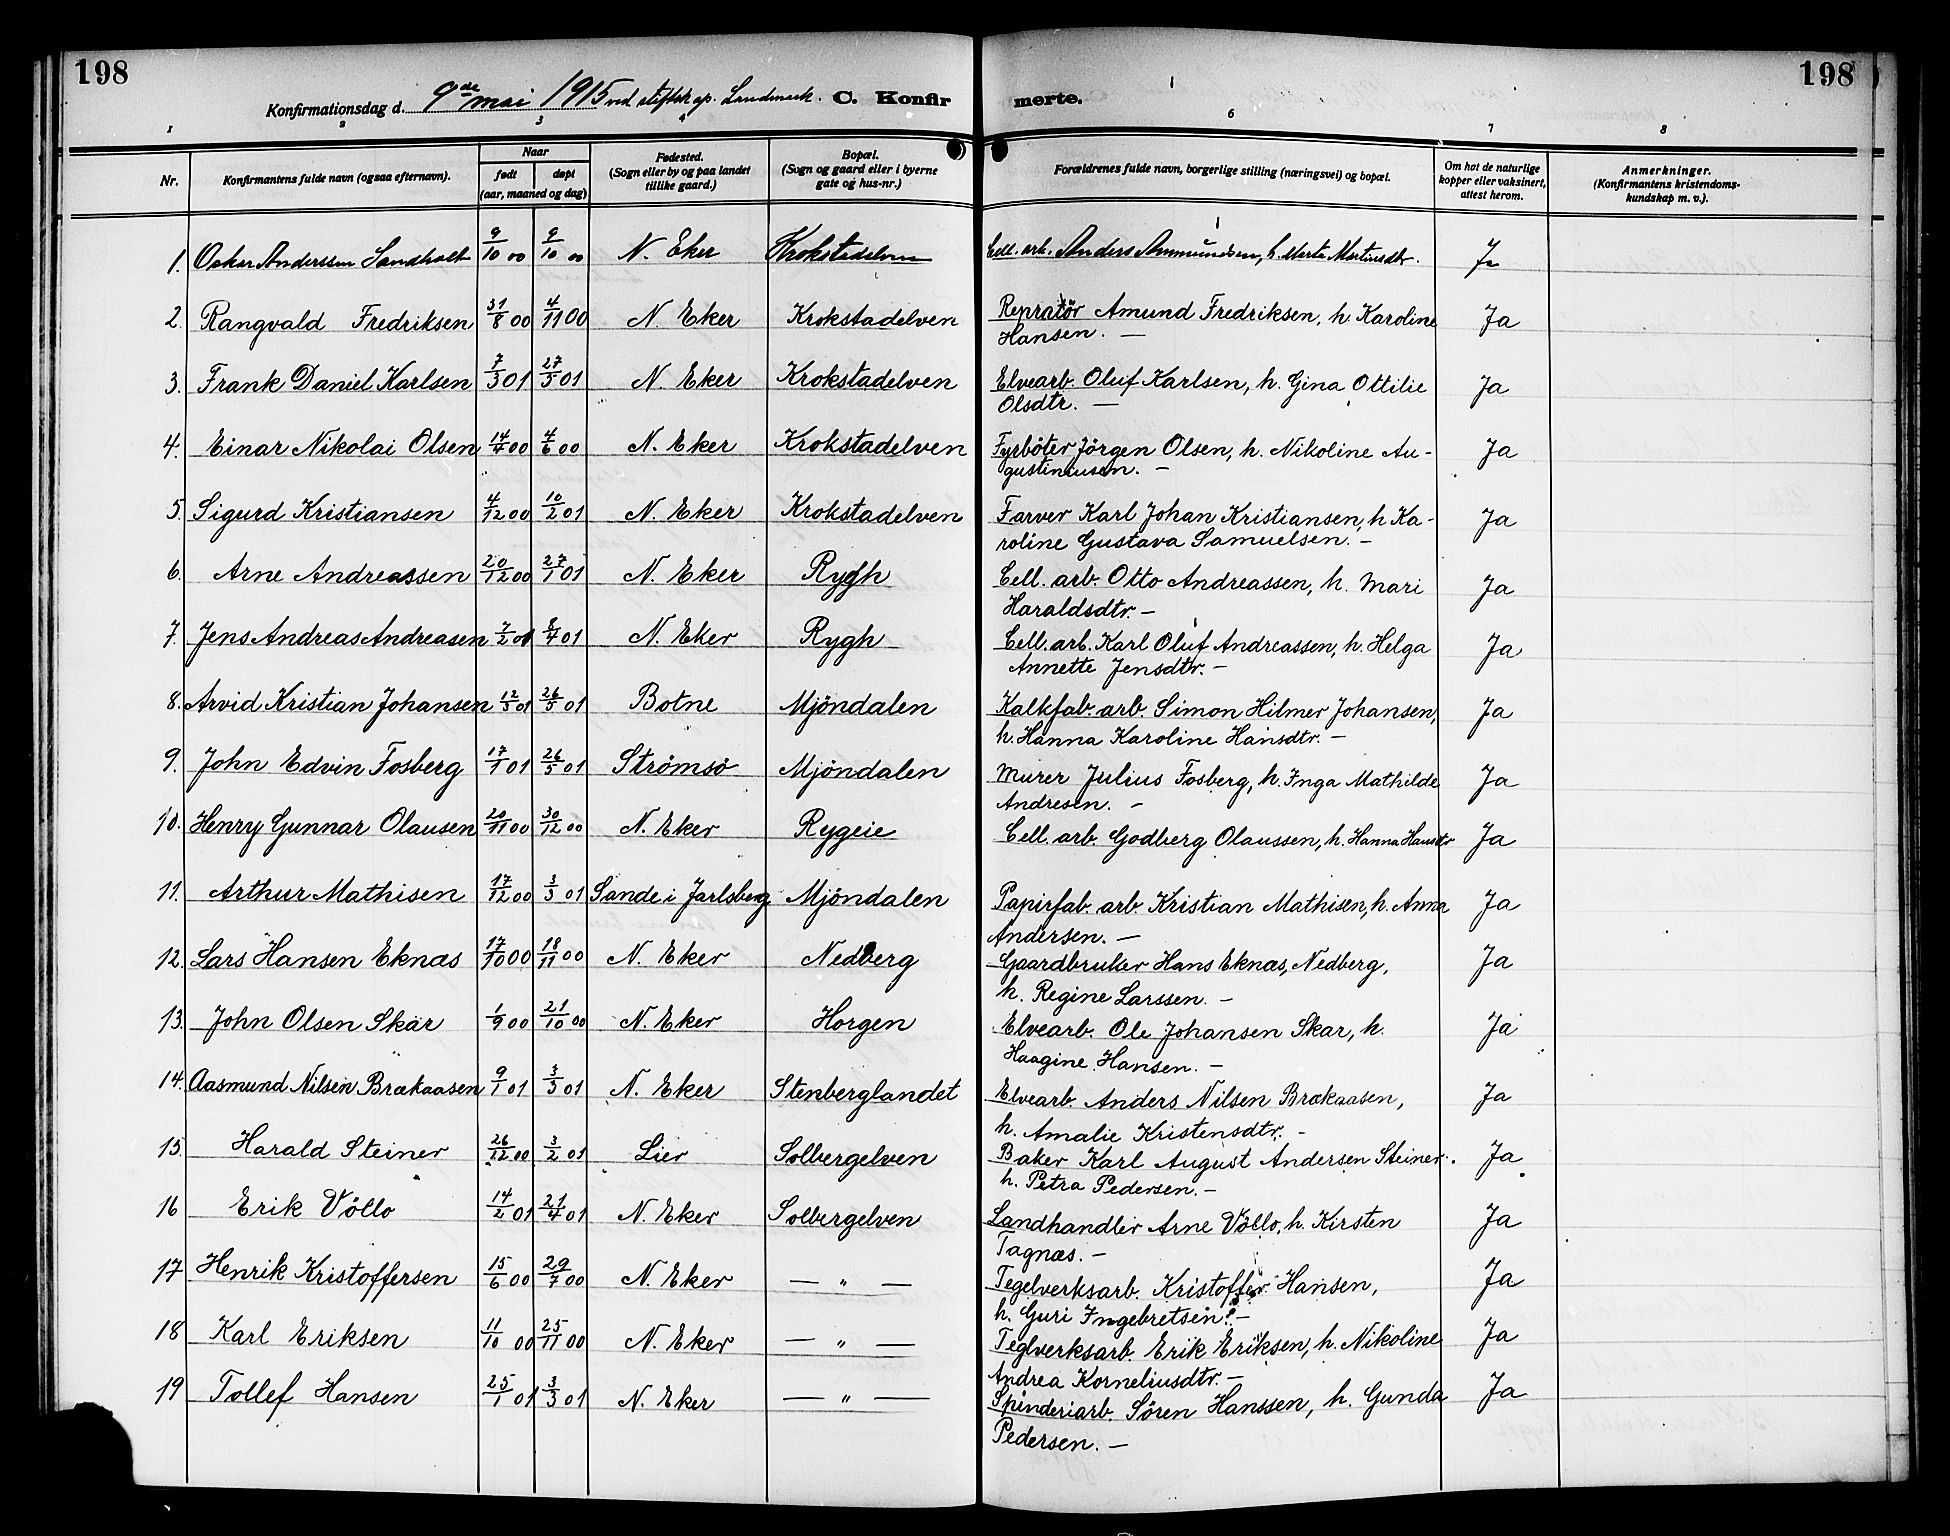 198
198
Konfirmationsdag d. 9de mai 1915 ved stiftskap. Landmark. C. Konfirmerte.
1 2 3 4 6 7 8
Nr.
Konfirmantens fulde navn (ogsaa efternavn).
Naar
født
døpt
(aar, maaned og dag)
Fødested.
(Sogn eller by og paa landet
tillike gaard.)
Bopæl.
(Sogn og gaard eller i byerne
gate og hus-nr.)
Forældrenes fulde navn, borgerlige stilling (næringsvei) og bopæl.
Om hat de naturlige
kopper eller vaksinert,
attest herom.
Anmerkninger.
(Konfirmantens kristendoms-
kundskap m. v.).
1. Oskar Anderssen Sandholt 9/10 00 9/10 00 N. Eker Krokstadelven Cell. arb. Anders Ammundsen, h. Merte Martinsdtr. Ja
2. Rangvald Fredriksen 31/8 00 4/11 00 N Eker Krokstadelven Repratör Amund Fredriksen, h. Karoline Ja
Hansen. —
3. Frank Daniel Karlsen 7/3 01 27/5 01 N. Eker Krokstadelven Elvearb. Oluf Karlsen, h. Gina Ottilie Ja
Olsdtr. —
4. Einar Nikolai Olsen 14/4 00 4/6 00 N. Eker Krokstadelven Fyrböter Jörgen Olsen, h. Nikoline Au- Ja
gustiniusen. —
5. Sigurd Kristiansen 4/12 00 10/2 01 N. Eker Krokstadelven Farver Karl Johan Kristiansen, h Ka- Ja
roline Gustava Samuelsen. —
6. Arne Andreassen 20/12 00 27/1 01 N. Eker Rygh Cell. arb. Otto Andreassen, h. Mari Ja
Haraldsdtr. —
7. Jens Andreas Andreasen 7/2 01 8/4 01 N. Eker Rygh Cell. arb. Karl Oluf Andreassen, h. Helga Ja
Annette Jensdtr. —
8. Arvid Kristian Johansen 12/3 01 26/5 01 Botne Mjöndalen Kalkfab. arb. Simon Hilmer Johansen, Ja
h. Hanna Karoline Hansdtr. —
9. John Edvin Fosberg 17/1 01 26/5 01 Strømsö Mjöndalen Murer Julius Fosberg, h. Inga Mathilde Ja
Andresen. —
10. Henry Gunnar Olausen 20/11 00 30/12 00 N. Eker Rygeie Cell. arb. Godberg Olaussen, h. Hanna Hansdtr Ja
11. Arthur Mathisen 17/12 00 3/3 01 Sande i Jarlsberg Mjöndalen Papirfab. arb. Kristian Mathisen, h. Anna Ja
Andersen. —
12. Lars Hansen Eknæs 17/10 00 18/11 00 N. Eker Nedberg Gaardbruker Hans Eknæs, Nedberg, Ja
h. Regine Larssen. —
13. John Olsen Skar 1/9 00 21/10 00 N. Eker Horgen Elvearb. Ole Johansen Skar, h. Ja
Haagine Hansen. —
14. Aasmund Nilsen Brækaasen 9/1 01 3/3 01 N. Eker Stenberglandet Elvearb. Anders Nilsen Brækaasen, Ja
h. Amalie Kristensdtr. —
15. Harald Steiner 26/12 00 3/2 01 Lier Solbergelven Baker Karl August Andersen Steiner. Ja
h. Petra Pedersen. —
16 Erik Völlo 14/2 01 21/4 01 N. Eker Solbergelven Landhandler Arne Völlo, h. Kirsten Ja
Tagnæs. —
17 Henrik Kristoffersen 15/6 00 29/7 00 N. Eker — " — Tegelverksarb. Kristoffer Hansen, Ja
h. Guri Ingebretsen. —
18 Karl Eriksen 11/10 00 25/11 00 N. Eker — " — Teglverksarb. Erik Eriksen, h. Nikoline Ja
Andrea Korneliusdtr. —
19 Tollef Hansen 25/1 01 3/3 01 N. Eker — " — Spinderiarb. Sören Hanssen, h. Gunda Ja
Pedersen. —